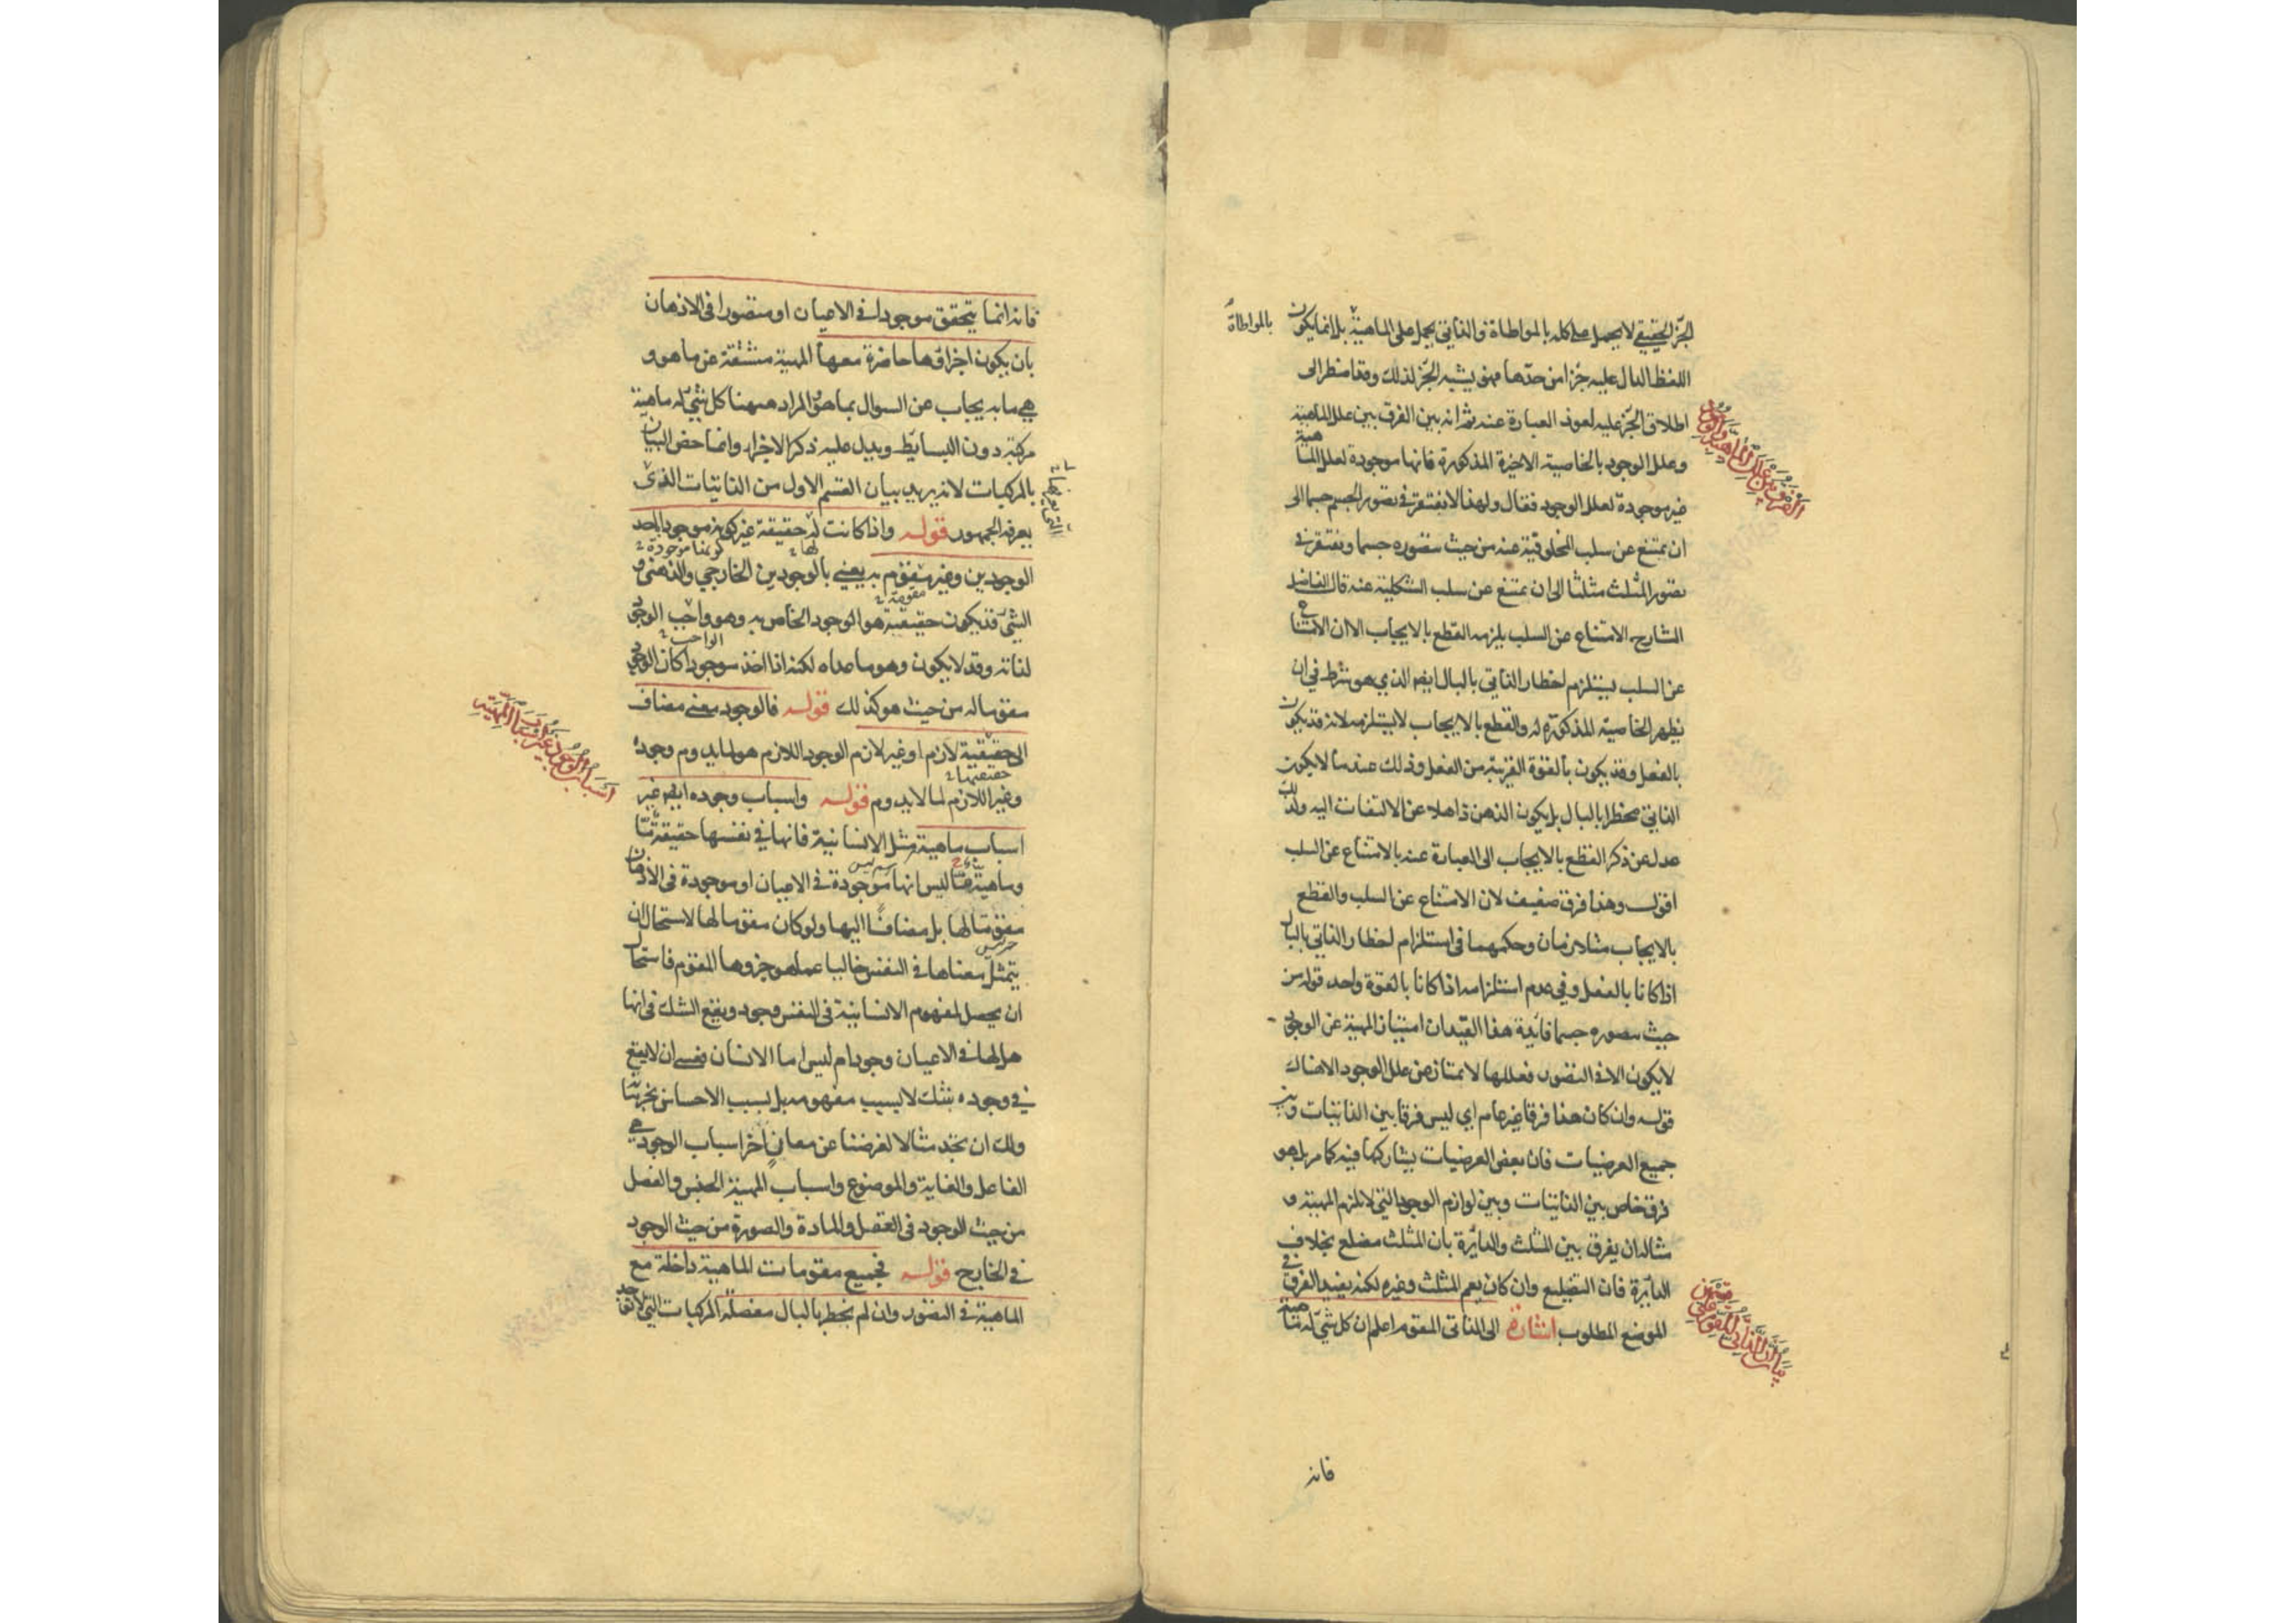 الجزء الحقيقي لا يحمل على كله بالمواطاة والذاتي يحمل على الماهية بل انما يكون
بالمواطاة
اللفظ الدال عليه جزا من حدها فهو يشبه الجزء لذلك وقد اضطر الى
اطلاق الجزء عليه لعوز العبارة عنه ثم انه بين الفرق بين علل الماهية
وعلل الوجود بالخاصية الاخيرة المذكورة فانها موجودة لعلل الماهية
غير موجودة لعلل الوجود فقال ولهذا لا نفتقر في تصور الجسم جسما الى
ان نمتنع عن سلب المخلوقية عنه من حيث نتصوره جسما ونفتقر في
تصور المثلث مثلثا الى ان نمتنع عن سلب الشكلية عنه قال الفاضل
الشارح الامتناع عن السلب يلزمه القطع بالايجاب الا ان الامتناع
عن السلب يستلزم اخطار الذاتي بالبال ايضا الذي هو شرط في ان
يظهر الخاصية المذكورة له والقطع بالايجاب لا يستلزمه لانه قد يكون
بالفعل وقد يكون بالقوة القريبة من الفعل وذلك عند ما لا يكون
الذاتي مخطرا بالبال بل يكون الذهن ذاهلا عن الالتفات اليه ولذلك
عدل عن ذكر القطع بالايجاب الى العبارة عنه بالامتناع عن السلب
اقول وهذا فرق ضعيف لان الامتناع عن السلب والقطع
بالايجاب متلازمان وحكمهما في استلزام اخطار الذاتي بالبال
اذا كانا بالفعل وفي عدم استلزامه اذا كانا بالقوة واحد قوله من
حيث نتصوره جسما فايدة هذا القيد ان امتياز المهية عن الوجود
لا يكون الا في التصور فعللها لا تمتاز عن علل الوجود الا هناك
قوله وان كان هذا فرقا غير عام اي ليس فرقا بين الذاتيات وبين
جميع العرضيات فان بعض العرضيات يشاركها فيه كما مر بل هو
فرق خاص بين الذاتيات وبين لوازم الوجود التي لا تلزم المهية و
مثاله ان يفرق بين المثلث والدائرة بان المثلث مضلع بخلاف
الدائرة فان التضليع وان كان يعم المثلث وغيره لكنه يفيد الفرق في
الموضع المطلوب اشارة الى الذاتي المقوم اعلم ان كل شيء له ماهية
الفرق بين علل الماهية والوجود
فانه
فانه انما يتحقق موجودا في الاعيان او متصورا في الاذهان
بان يكون اجزاؤها حاضرة معها المهية مشتقة عن ما هو و
هي ما به يجاب عن السؤال بما هو والمراد ههنا كل شيء له ماهية
مركبة دون البسايط ويدل عليه ذكر الاجزاء وانما خص البيان
بالمركبات لانه يريد بيان القسم الاول من الذاتيات الذي
يعرفه الجمهور قوله واذا كانت له حقيقة غير كونه موجودا باحد
لها
كونها موجودة
الوجودين وغير مقوم به يعني بالوجودين الخارجي والذهني و
مقومة
الشيء قد يكون حقيقته هو الوجود الخاص به وهو واجب الوجود
الواجب
لذاته وقد لا يكون وهو ما عداه لكنه اذا اخذ موجودا كان الوجود
مقوما له من حيث هو كذلك قوله فالوجود معنى مضاف
الى حقيقته لازم او غير لازم الوجود اللازم هو لما يدوم وجوده
حقيقتها
وغير اللازم لما لا يدوم قوله واسباب وجوده ايضا غير
اسباب ماهيته مثل الانسانية فانها في نفسها حقيقة ما
وماهية ما ليس انها موجودة في الاعيان او موجودة في الاذهان
مقوما لها بل مضافا اليها ولو كان مقوما لها لاستحال ان
يتمثل معناها في النفس خاليا عما هو جزوها المقوم فاستحال
ان يحصل لمفهوم الانسانية في النفس وجود ويقع الشك في انها
هل لها في الاعيان وجود ام ليس اما الانسان فعسى ان لا يقع
في وجوده شك لا بسبب مفهومه بل بسبب الاحساس بجزئياته
ولك ان تجد مثالا لغرضنا عن معان اخر اسباب الوجود هي
الفاعل والغاية والموضوع واسباب المهية الجنس والفصل
من حيث الوجود في العقل والمادة والصورة من حيث الوجود
في الخارج قوله فجميع مقومات الماهية داخلة مع
الماهية في التصور وان لم يخطر بالبال مفصلة المركبات التي لا تتحد
اسباب الوجود غير اسباب المهية